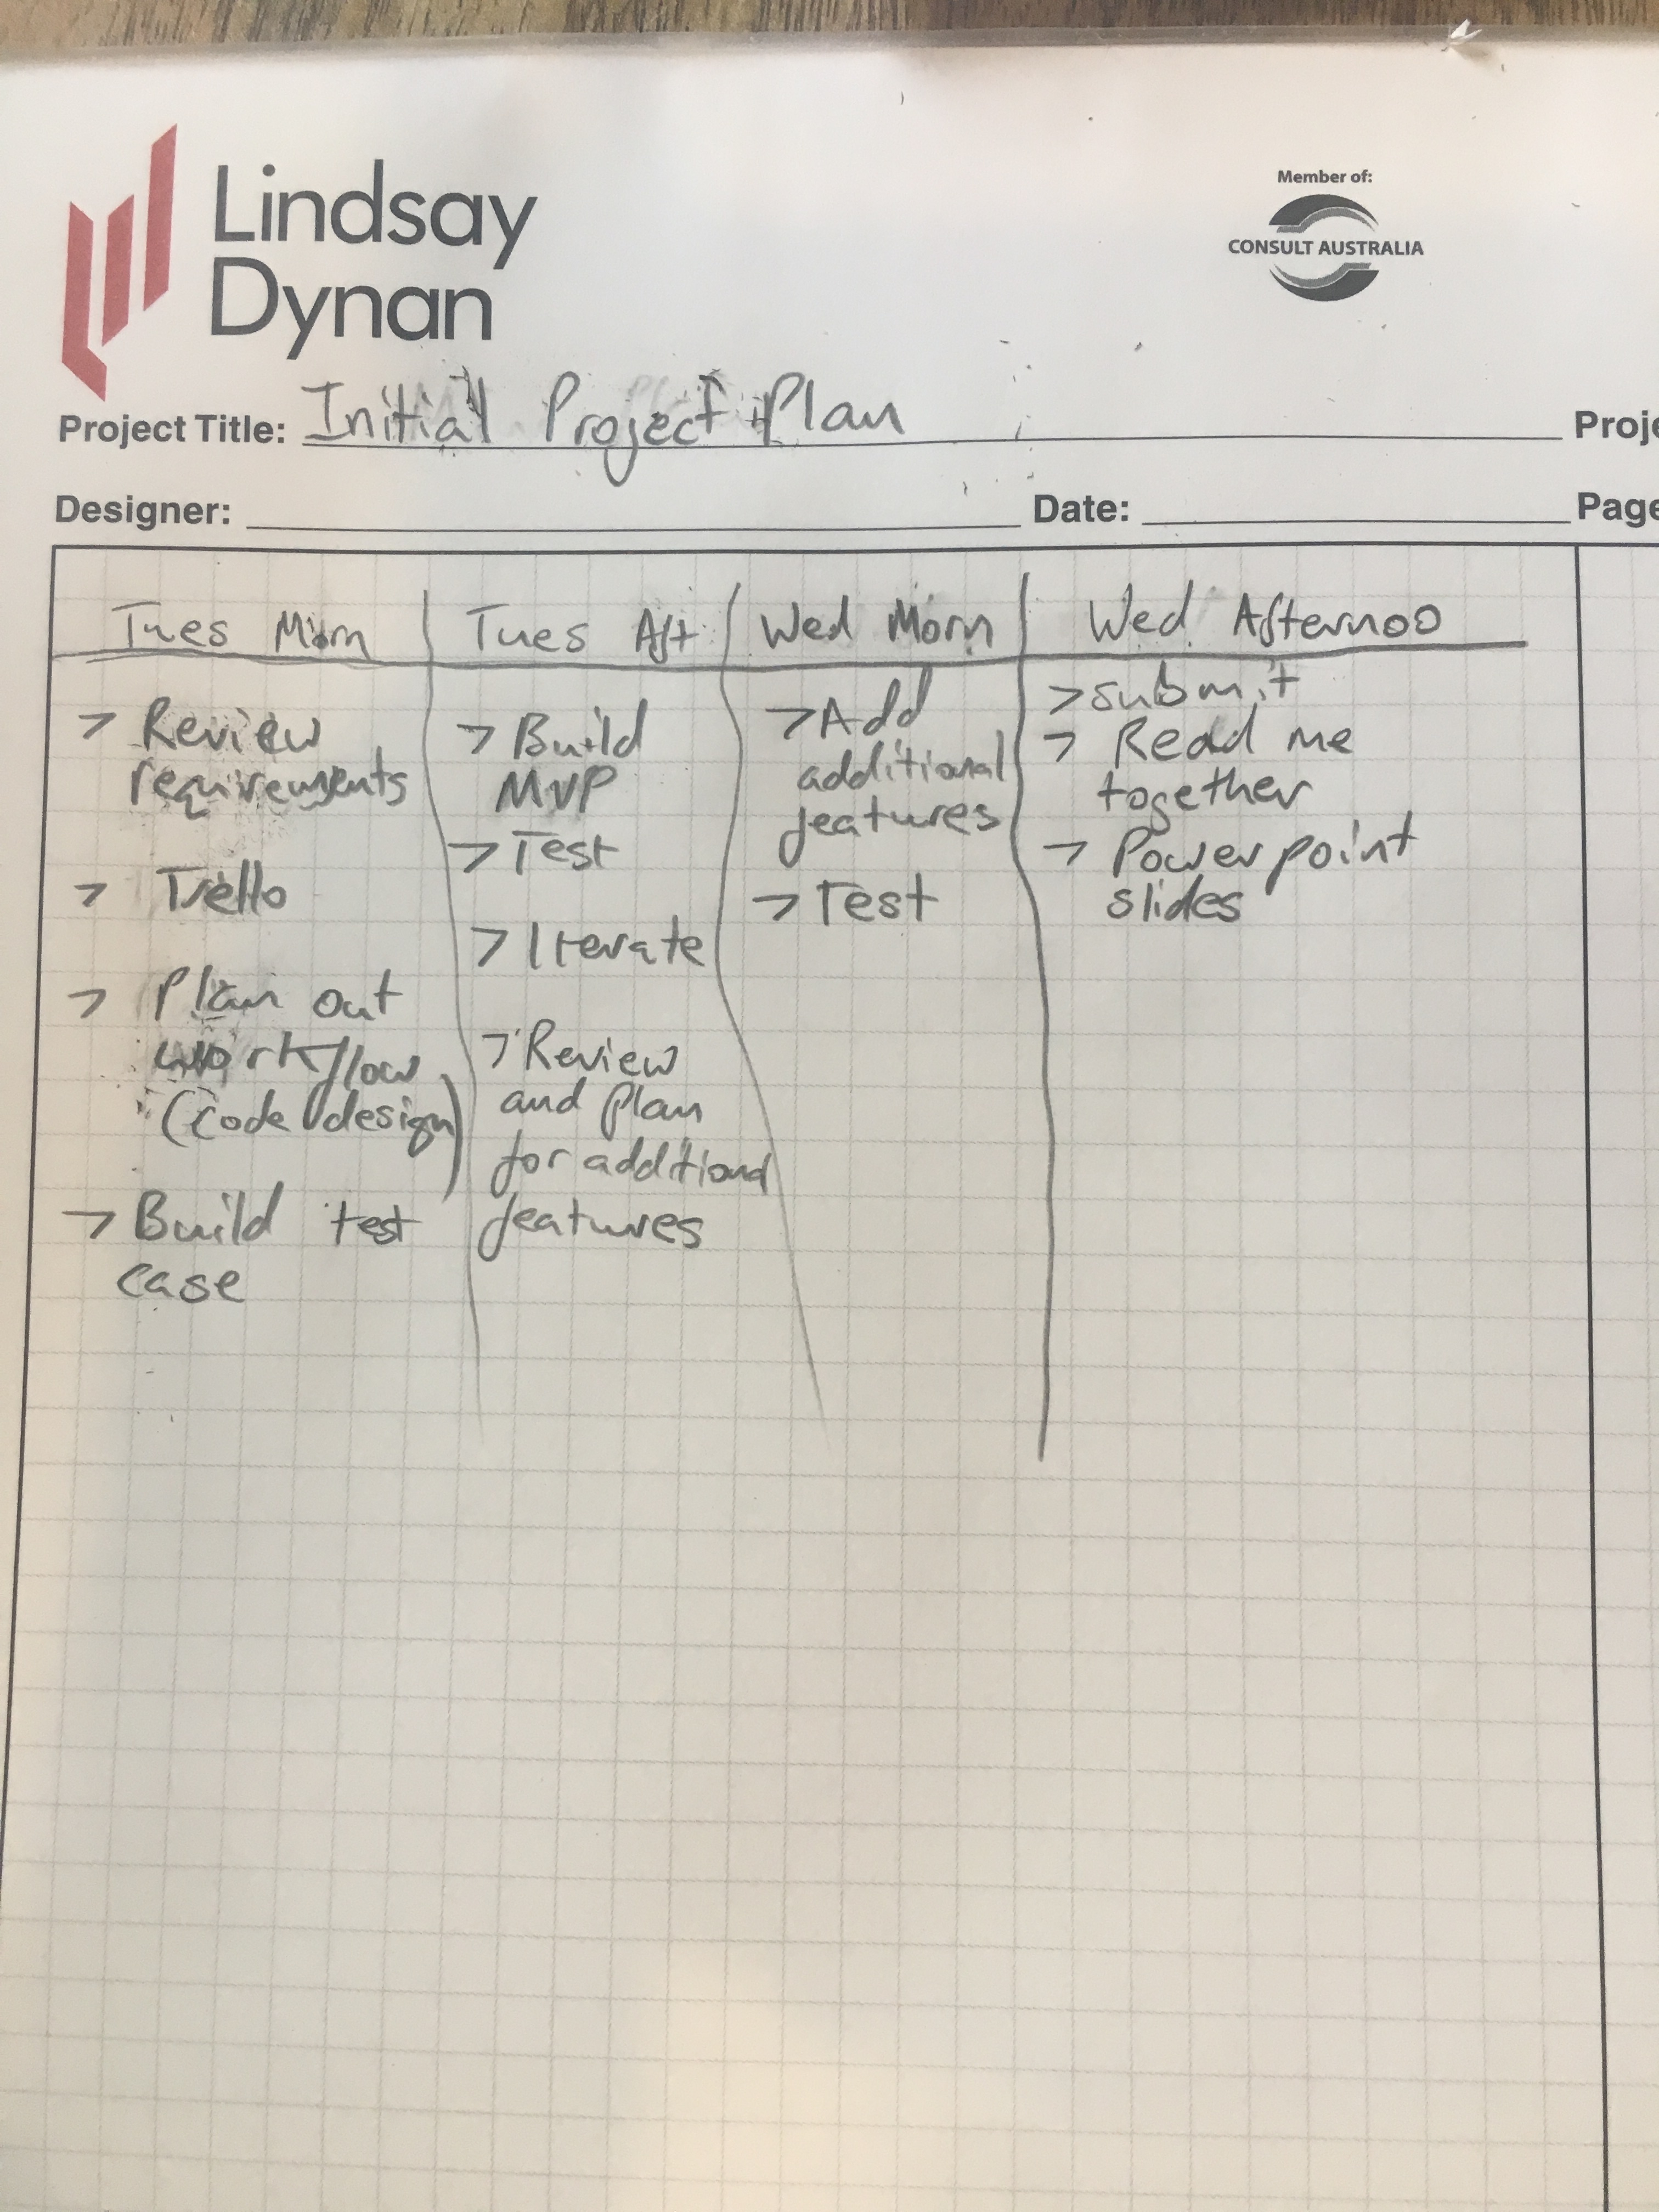 Lindsay
Dynan
Member of:
CONSULT AUSTRALIA
Project Title: Initial Project Plan
Proje
Designer:
Date:
Page
Tues Morn
> Review
requirements
> Trello
> Plan out
workflow
(code design)
> Build test
case
Tues Aft
> Build
MVP
> Test
> Iterate
> Review
and plan
for additional
features
Wed Morn
> Add
additional
features
> Test
Wed Afternoo
> submit
> Read me
together
> Powerpoint
slides